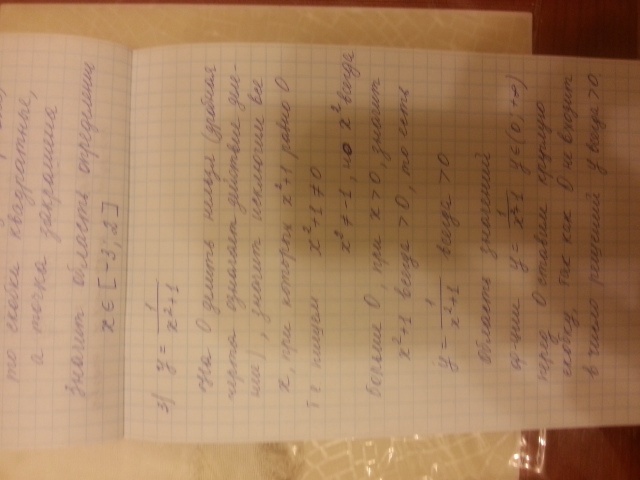 то скобки квадратные,
а точка закрашена
значит область определения
x ∈ [-3; 2]
3) y = 1/(x²+1)
На 0 делить нельзя (дробная
черта означает действие деле-
ния), значит исключим все
x, при которых x²+1 равно 0
т.е пишем x²+1 ≠ 0
x² ≠ -1, но x² всегда
больше 0, при x > 0, значит
x²+1 всегда > 0, то есть
y = 1/(x²+1) всегда > 0
Область значений
ф-ции y = 1/(x²+1) y ∈ (0; +∞)
перед 0 ставим круглую
скобку, так как 0 не входит
в число решений y всегда > 0